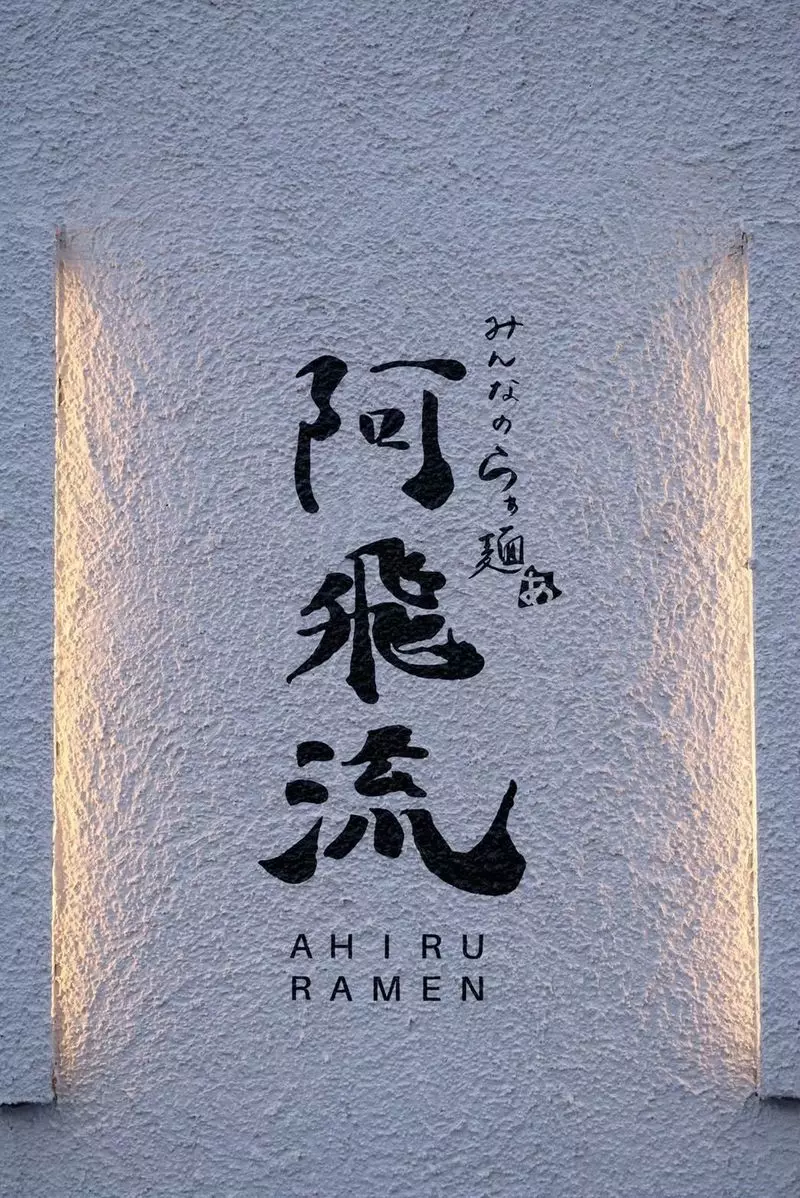 みんなのらぁ麺
あ
阿飛流
AHIRU
RAMEN